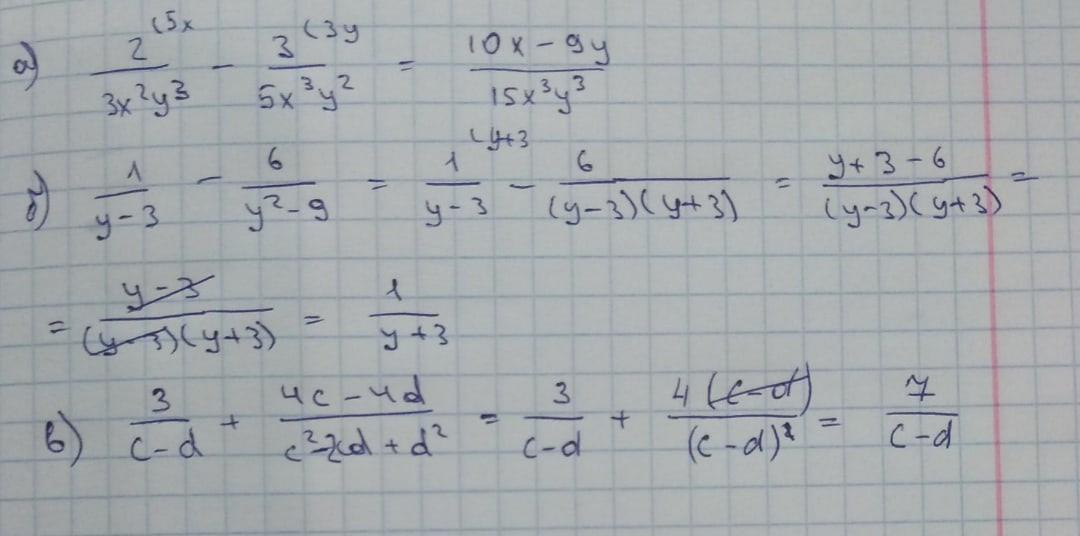 а) 2⁽⁵ˣ/3x²y³ - 3⁽³ʸ/5x³y² = (10x - 9y)/15x³y³
б) 1/(y-3) - 6/(y²-9) = 1⁽ʸ⁺³/(y-3) - 6/((y-3)(y+3)) = (y+3-6)/((y-3)(y+3)) =
= (y-3)/((y-3)(y+3)) = 1/(y+3)
в) 3/(c-d) + (4c-4d)/(c²-2cd+d²) = 3/(c-d) + 4(c-d)/(c-d)² = 7/(c-d)